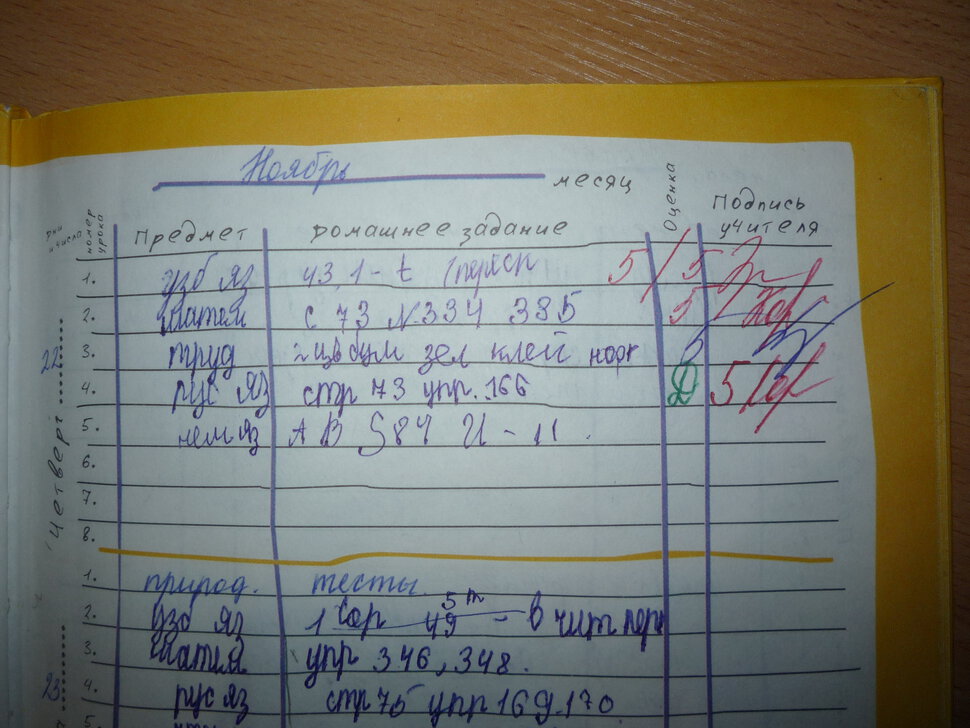 Ноябрь месяц
Дни и числа номер урока Предмет Домашнее задание Оценка Подпись учителя
Четверг 22
1. узб яз 43, 1-t 5/5
2. матем с 73 №334 335 5
3. труд 2 цв бум зел клей
4. рус яз стр 73 упр. 166 5
5. нем яз А В §84 U - 11.
6.
7.
8.
23
1. природ. тесты.
2. узб яз 1 49 5 m - в чит
3. матем упр 346, 348.
4. рус яз стр 75 упр 169.170
5.